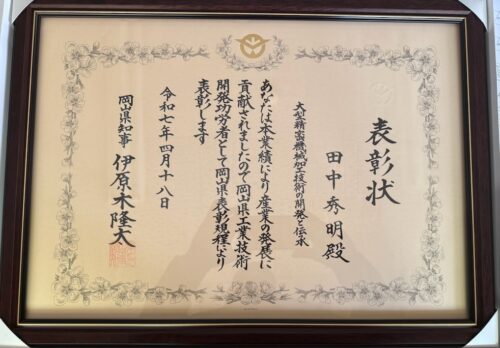 表彰状
田中秀明殿
大型精密機械加工技術の開発と伝承
あなたは本業績により産業の発展に
貢献されましたので岡山県工業技術
開発功労者として岡山県表彰規程により
表彰します
令和七年四月十八日
岡山県知事 伊原木隆太